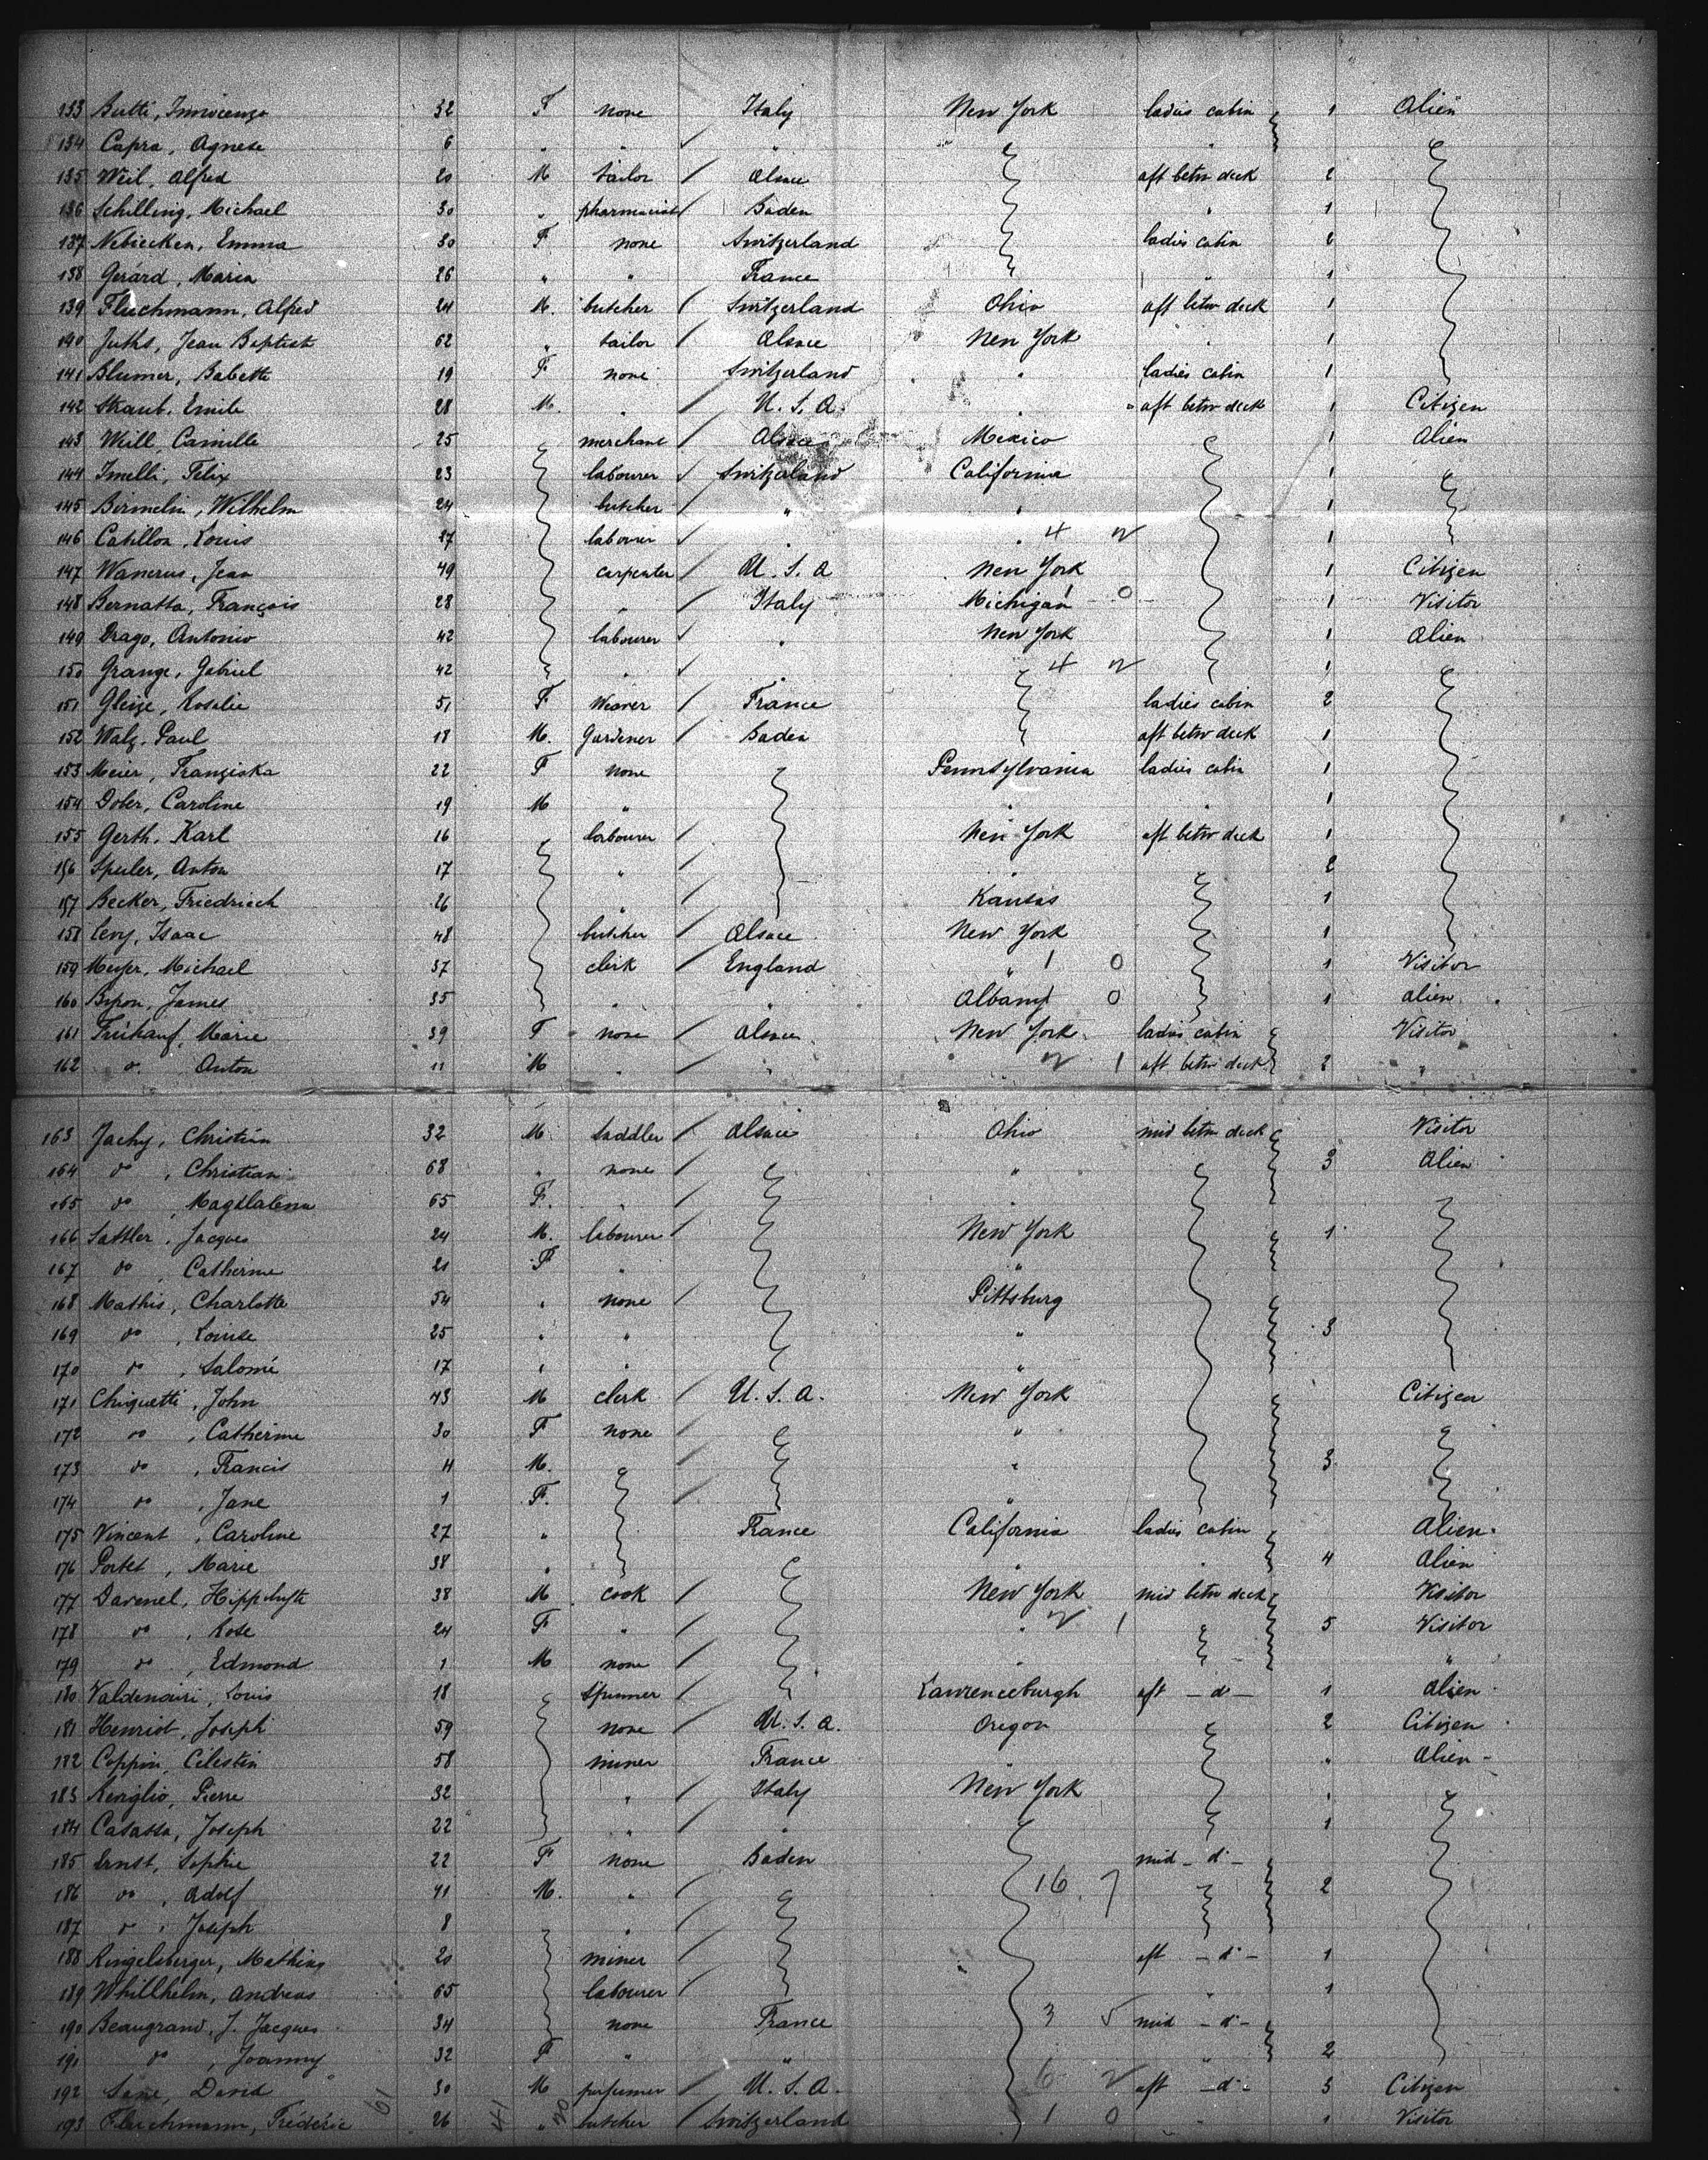 133 Butti, Innocenza 32 F none Italy New York ladies cabin 1 Alien
134 Capra, Agnese 6 " " " "
135 Weil, Alfred 20 M tailor Alsace aft betw deck 2
136 Schilling, Michael 30 " pharmacist Baden " 1
137 Nebiecker, Emma 30 F none Switzerland ladies cabin 2
138 Gerard, Maria 26 " " France " 1
139 Fleischmann, Alfred 24 M. butcher Switzerland Ohio aft betw deck 1
140 Juths, Jean Baptist 62 " tailor Alsace New York " 1
141 Blumer, Babette 19 F none Switzerland " ladies cabin 1
142 Straub, Emile 28 M. " U. S. A. " aft betw deck 1 Citizen
143 Weill, Camille 25 merchant Alsace Mexico 1 Alien
144 Imelli, Felix 23 labourer Switzerland California 1
145 Birmelin, Wilhelm 24 butcher " " 1
146 Catillon, Louis 27 labourer " " 4 2 1
147 Wanerus, Jean 49 carpenter U. S. A New York 1 Citizen
148 Bernatta, François 28 " Italy Michigan 1 0 1 Visitor
149 Drago, Antonio 42 labourer " New York 1 Alien
150 Grange, Gabriel 42 " " 4 2 1
151 Gleize, Rosalie 51 F Weaver France ladies cabin 2
152 Walz, Paul 18 M. Gardener Baden aft betw deck 1
153 Meier, Franziska 22 F none Pennsylvania ladies cabin 1
154 Dober, Caroline 19 M " " " 1
155 Gerth, Karl 16 labourer New York aft betw deck 1
156 Speeler, Anton 17 " " 2
157 Becker, Friedrich 26 " Kansas 1
158 Levy, Isaac 48 butcher Alsace New York 1
159 Meyer, Michael 37 clerk England " 1 0 1 Visitor
160 Byron, James 35 " " Albany 0 1 alien
161 Frühauf, Marie 39 F none Alsace New York ladies cabin Visitor
162 do. Anton 11 M " " 2 1 aft betw deck 2 "
163 Jachy, Christian 32 M saddler Alsace Ohio mid betw deck Visitor
164 do, Christian 68 " none " 3 Alien
165 do, Magdalena 65 F. " "
166 Sattler, Jacques 24 M. labourer New York 1
167 do, Catherine 21 F " "
168 Mathis, Charlotte 54 " none Pittsburg
169 do, Louise 25 " " " 3
170 do, Salomé 17 " " "
171 Chiquetti, John 43 M clerk U. S. A. New York Citizen
172 do, Catherine 30 F none "
173 do, Francis 4 M. " 3
174 do, Jane 1 F. "
175 Vincent, Caroline 27 " France California ladies cabin Alien
176 Portet, Marie 38 " " " 4 Alien
177 Davenel, Hippolyte 38 M cook New York mid betw deck Visitor
178 do, Rose 24 F " " 2 1 5 Visitor
179 do, Edmond 1 M none " "
180 Valdenairi, Louis 18 Spinner Lawrenceburgh aft - d - 1 Alien
181 Henriot, Joseph 59 none U. S. A. Oregon 2 Citizen
182 Coppin, Célestin 58 miner France " " Alien
183 Reviglio, Pierre 32 " Italy New York 1
184 Casassa, Joseph 22 " " 1
185 Ernst, Sophie 22 F none Baden mid - d -
186 do, Adolf 41 M. " 16 7 2
187 do, Joseph 8 "
188 Ringelsberger, Mathias 20 miner aft - d - 1
189 Whillhelm, Andreas 65 labourer " 1
190 Beaugrand, J. Jacques 34 none France 3 5 mid - d -
191 do, Joanny 32 F " " " 2
192 Lane, David 30 M perfumer U. S. A. 6 2 aft - d - 3 Citizen
193 Fleischmann, Fréderic 26 " butcher Switzerland 1 0 " 1 Visitor
61 41 20